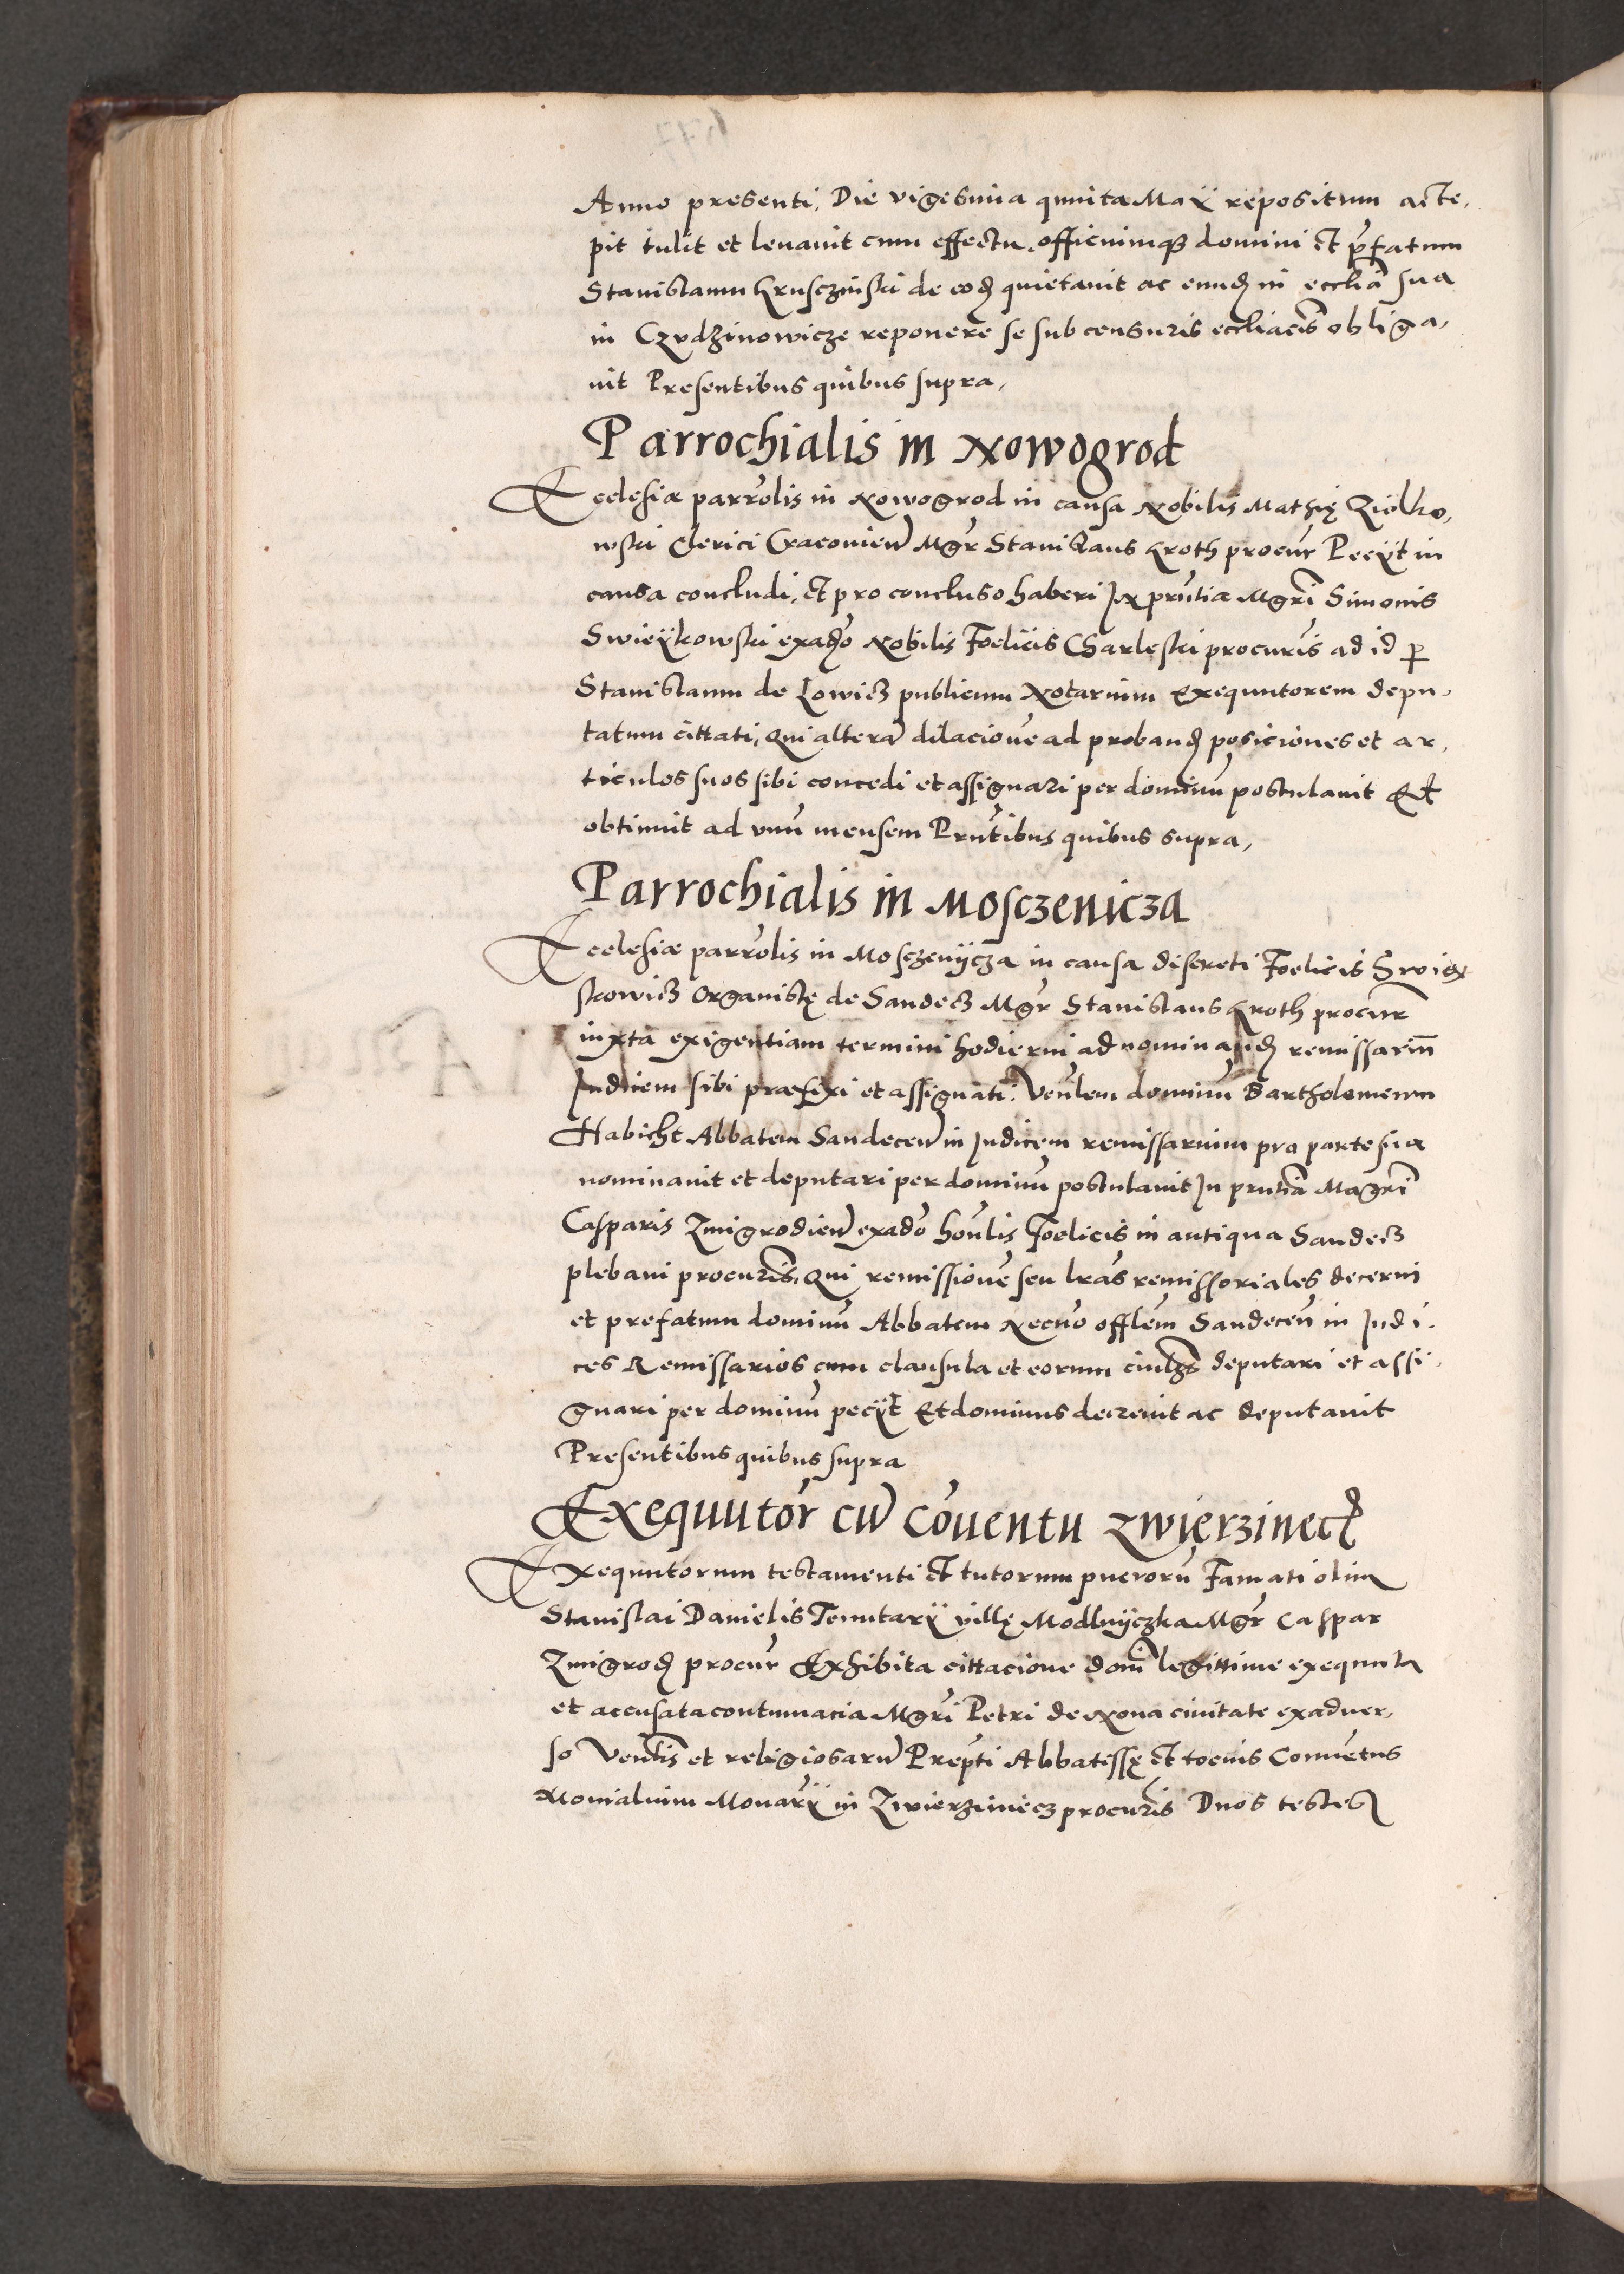 Anno presenti. Die vigesima quinta Maÿ repositum acce,
pit tulit et leuauit cum effectu, officiumq3 domini et p̄fatum
Stanislaum Kruscziński de eoď quietauit ac eunď in eccliā sua
in Czudzinowicze reponere se sub censuris eccliacīs obliga,
uit Presentibus quibus supra,
Parrochialis in Nowogrod
Ecclesiæ parrōlis in Nowogrod in causa Nobilis Mathię Ziolko,
wski Clerici Cracovien̄ Mgr̄ Stanislaus Kroth procur̄ Peeÿt in
causa concludi, et pro concluso haberi In prn̄tia Mgrī Simonis
Swieÿkowski exadō Nobilis Foelicis Charleski procurīs ad id p̱
Stanislaum de Lowicz publicum Notarium Exequutorem depu,
tatum cittati, Qui alterā dilacionē ad probanď posiciones et ar,
ticulos suos sibi concedi et assignari per dominū postulauit Et
obtinuit ad vnū mensem Prn̄tibus quibus supra,
Parrochialis in Mosczenicza
Ecclesiæ parrōlis in Mosczenÿcza in causa discreti Foelicis Swiex
kowicz Organistę de Sandecz Mgr̄ Stanislaus Kroth procur̄
iuxta exigentiam termini hodierni ad nominanď remissariū
Iudicem sibi præfixi et assignati. Venlēm dominū Bartholomeum
Habicht Abbatem Sandecen̄ in Iudicem remissarium pro parte sua
nominauit et deputari per dominū postulauit In prn̄tiā Magrī
Casparis Zmigrodien̄ exadō honlīs Foelicis in antiqua Sandecz
plebani procurīs, Qui remissionē seu lrās remissoriales decerni
et prefatum dominū Abbatem Necnō offlēm Sandecen̄ in Iudi.
ces Remissarios cum clausula et eorum cuilz̄ deputari et assi,
gnari per dominū peciÿt Et dominus decreuit ac deputauit
Presentibus quibus supra
Exequutor̄ cū Cōuentu Zwierzinecď
Exequutorum testamenti et tutorum puerorū Famati olim
Stanislai Danielis Tenutarÿ villę Modlnÿczka Mgr̄ Caspar
Zmigroď procur̄ Exhibita cittacione domī legittime exequuta
et accusata contumacia Mgrī Petri de Noua ciuitate exaduer,
so Venlīs et religiosarū Prepti Abbatissę et tocius Conuētus
Monialium Monarÿ in Zwierziniecz procurīs Duos testes